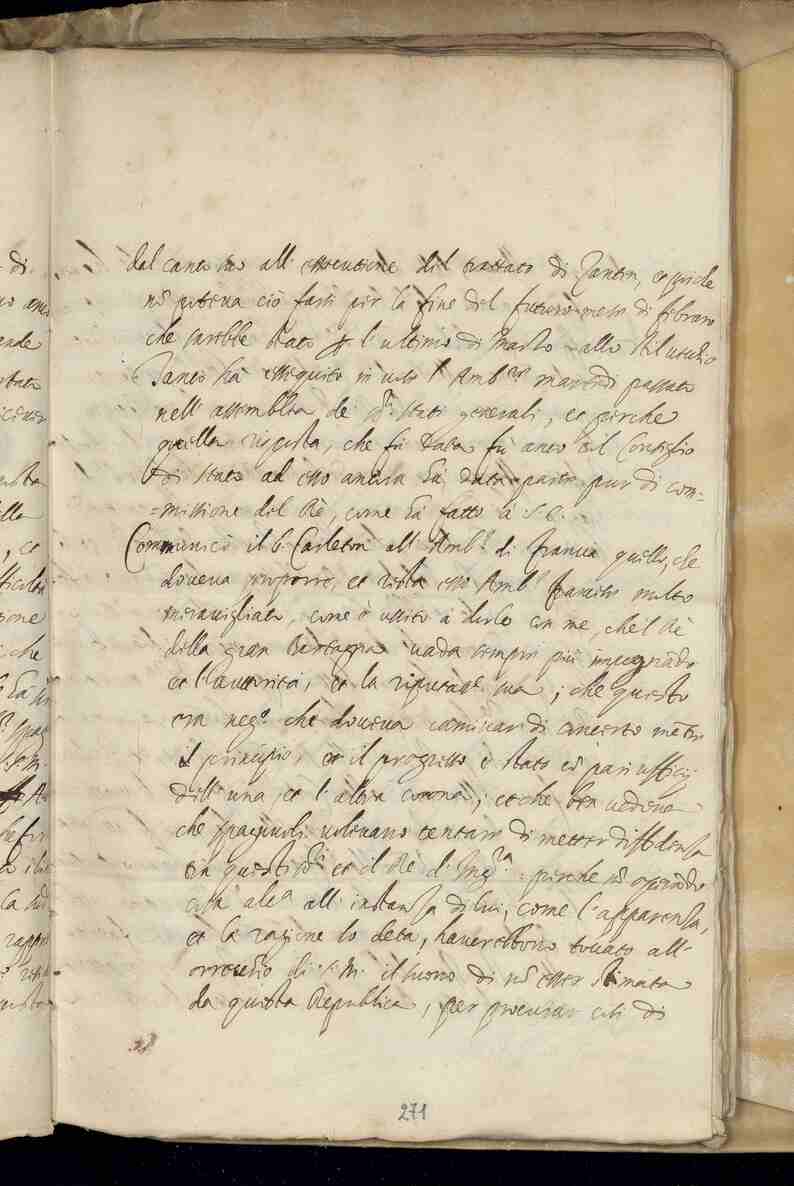 dal canto suo all essecutione del trattato di Santen, et perche
nõ poteva ciò farsi per la fine del futuro mese di febraro
che sarebbe stato l'ultimo di Marzo allo stil vechio
Tanto ha essequito in voce l'Amb.r martedì passato
nell'assemblea de ss.ri stati generali, et perche
quella risposta, che fù data fù anco dal Consiglio
di stato ad esso ancora hà dato parte pur di com=
=missione del Rè, come hà fatto à S. E.
Communicò il S.r Carleton all'Amb.r di Francia quello, che
doveva proporre, et resta esso Amb.r francese molto
meravigliato, come è uscito à dirlo con me, che'l Rè
della gran Bertagna vada sempre più impegnãdo
et l'auttorità, et la riputat.e sua; che questo
era neg.o che doveva caminar di concerto mẽtre
il principio, et il progresso è stato cõ pari ufficij
dell'una, et l'altra corona; et che ben vedeva
che spagnuoli volevano tentare di metter diffidenza
tra questi SS.ri et il Rè d'Ing.ra: perche nõ operãdo
cosa alc.a all'instanza di lui, come l'apparenza,
et la ragione lo detta, haverebbono toccato all'
orrecchio di S. M. il suono di nõ esser stimata
da questa Republica, per procurar così di
271